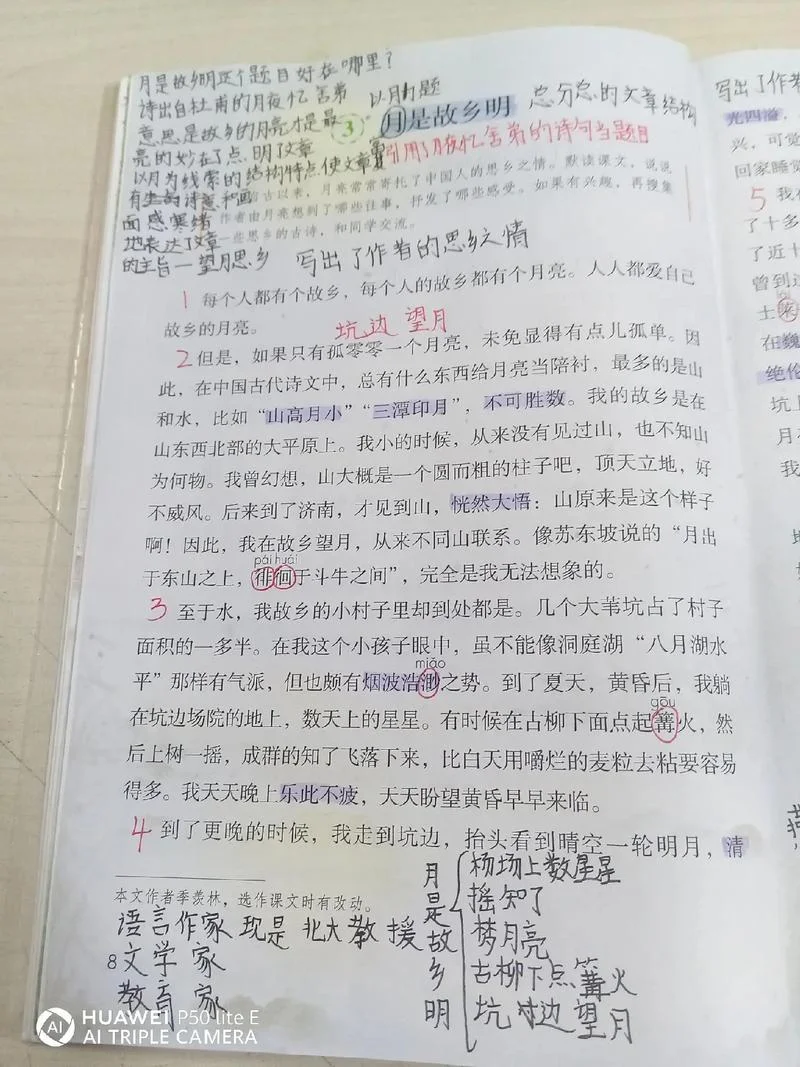 月是故乡明这个题目好在哪里？
诗出自杜甫的月夜忆舍弟
意思是故乡的月亮才是最
亮的妙在了点明了文章
以月为线索的结构特点使文章
有生的诗意和画
面感
地表达了文章
的主旨一望月思乡
以月为题
3
月是故乡明
总分总的文章结构
引用了月夜忆舍弟的诗句当题目
古以来，月亮常常寄托了中国人的思乡之情。默读课文，说说
作者由月亮想到了哪些往事，抒发了哪些感受。如果有兴趣，再搜集
一些思乡的古诗，和同学交流。
写出了作者的思乡之情
1 每个人都有个故乡，每个人的故乡都有个月亮。人人都爱自己
故乡的月亮。
坑边望月
2 但是，如果只有孤零零一个月亮，未免显得有点儿孤单。因
此，在中国古代诗文中，总有什么东西给月亮当陪衬，最多的是山
和水，比如“山高月小”“三潭印月”，不可胜数。我的故乡是在
山东西北部的大平原上。我小的时候，从来没有见过山，也不知山
为何物。我曾幻想，山大概是一个圆而粗的柱子吧，顶天立地，好
不威风。后来到了济南，才见到山，恍然大悟：山原来是这个样子
啊！因此，我在故乡望月，从来不同山联系。像苏东坡说的“月出
pái huái
于东山之上，徘徊于斗牛之间”，完全是我无法想象的。
3 至于水，我故乡的小村子里却到处都是。几个大苇坑占了村子
面积的一多半。在我这个小孩子眼中，虽不能像洞庭湖“八月湖水
miǎo
平”那样有气派，但也颇有烟波浩渺之势。到了夏天，黄昏后，我躺
gōu
在坑边场院的地上，数天上的星星。有时候在古柳下面点起篝火，然
后上树一摇，成群的知了飞落下来，比白天用嚼烂的麦粒去粘要容易
得多。我天天晚上乐此不疲，天天盼望黄昏早早来临。
4 到了更晚的时候，我走到坑边，抬头看到晴空一轮明月，清
本文作者季羡林，选作课文时有改动。
语言作家 现是 北大教援
8
文学家
教育家
月是故乡明
杨场上数星星
摇知了
梦月亮
古柳下点篝火
坑边望月
写出了作者
光四溢，
兴，可觉
回家睡觉
5 我在
了十多
了近十
曾到过
士莱
在巍
绝伦
坑上
月在
我
HUAWEI P50 lite E
AI TRIPLE CAMERA